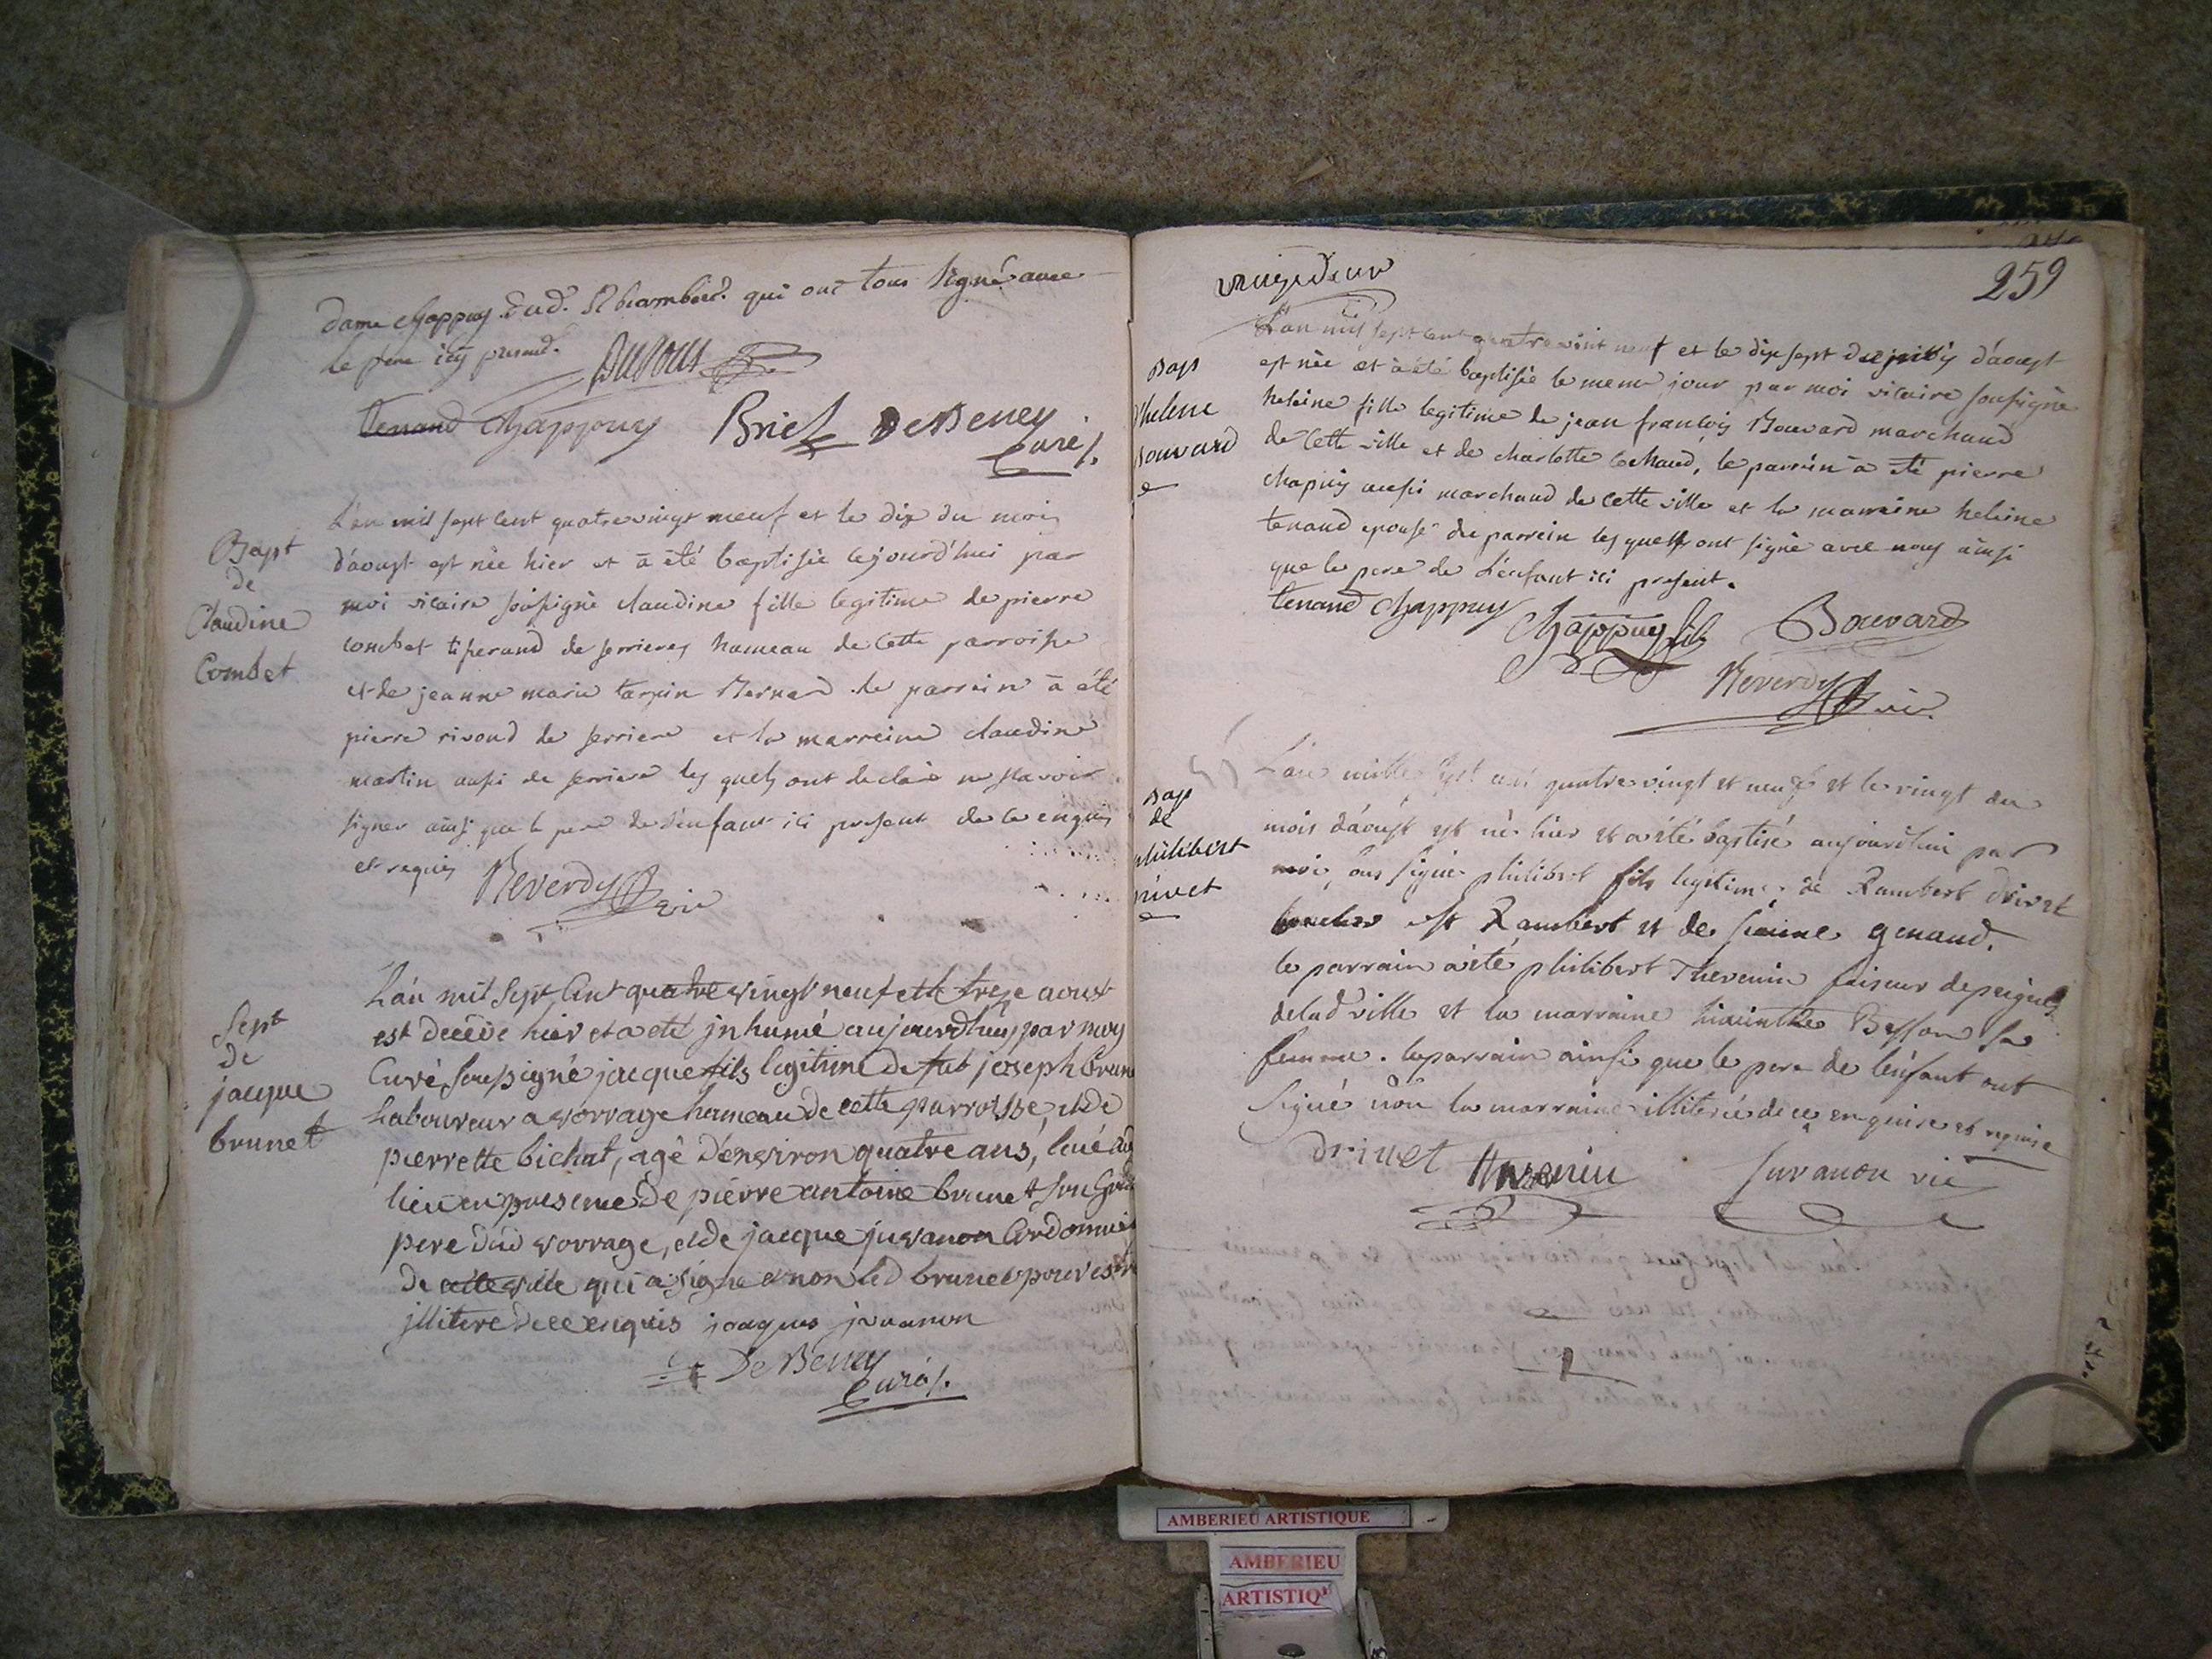 dame chappuy dud. St Rambert. qui ont tous signé avec
le père icy présend.
Dupous
tenand chappuy Briel DeBeney
Curé/.
Bapt
de
Claudine
Combet
L'an mil sept cent quatre vingt neuf et le dix du mois
d'aoust est née hier et à été baptisée cejourd'hui par
moi vicaire soussigné claudine fille legitime de pierre
combet tisserand de serrieres hameau de cette parroisse
et de jeanne marie tarpin Bernard le parrein à été
pierre rivond de serriere et la marreine claudine
martin aussi de serriere les quels ont declaré ne scavoir
signer ainsi que le pere de l'enfant ici present de ce enquis
et requis
Reverdy vic
Sept
de
jacque
brunet
L'an mil sept Cent quatre vingt neuf et le treze aoust
est decédé hier et a eté jnhumé aujourdhuy par moy
Curé soussigné jacque fils legitime de fut joseph brune
Laboureur a vorrage hameau de cette parroisse, et de
pierrette bichat, agé d'environ quatre ans,
lieu en presence de pierre antoine brunet son
pere dud vorrage, et de jacque juvanon Cordonnier
de cette ville qui a signé et non led brunet pour estre
jllitere de ce enquis jaques jvuanon
De Beney
Curé/.
259
Bap
d'helene
Bouvard
L'an mil sept cent quatre vint neuf et le dix sept d'aoust
est née et à été baptisée le meme jour par moi vicaire soussigné
heleine fille legitime de jean francois Bouvard marchand
de cette ville et de charlotte cochaud, le parrein à été pierre
chapuis aussi marchand de cette ville et la marreine heleine
tenand epouse du parrein les quels ont signé avec nous ainsi
que le pere de l'enfant ici present.
tenand chappuy chappuy fils Bouvard
Reverdy vic
Bap
de
philibert
drivet
L'an mille sept cent quatre vingt et neuf et le vingt du
mois d'aoust est né hier et a été baptisé aujourdhui par
moi sous signé philibert fils legitime de Rambert drivet
St Rambert et de genaud.
le parrain a été philibert Thevenin faiseur de peignes
de lad ville et la marraine hiacinthe Besson sa
femme. le parrain ainsi que le pere de l'enfant ont
signé non la marraine illiterée de ce enquise et requise
drivet thevenin Juvanon vic
AMBERIEU ARTISTIQUE
AMBERIEU
ARTISTIQ